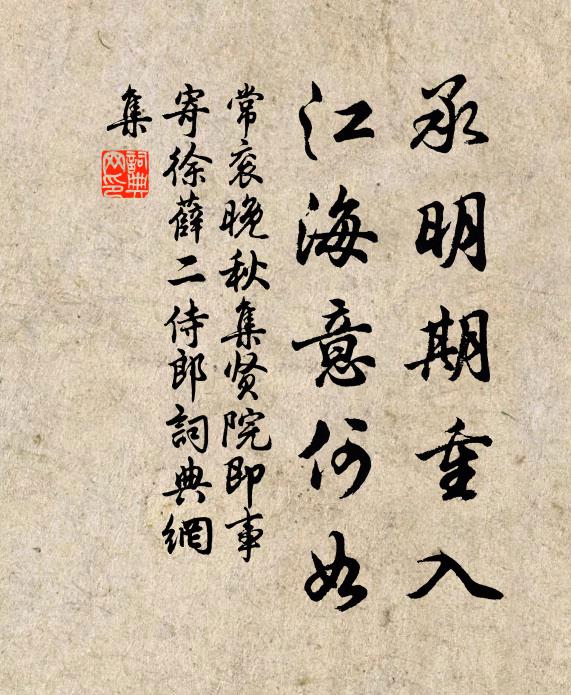 承明期重入
江海意何如
常袞晚秋集贤院即事
寄徐薛二侍郎詞典網
集
詞典網印